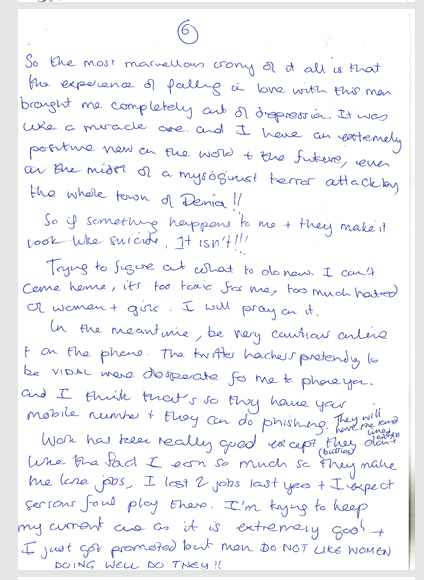 6
So the most marvellous irony of it all is that
the experience of falling in love with this man
brought me completely out of depression. It was
like a miracle cure. and I have an extremely
positive view on the world + the future, even
in the midst of a mysoginist terror attack by
the whole town of Denia!!
So if something happens to me + they make it
look like suicide. It isn't!!!
Trying to figure out what to do now. I can't
come home, it's too toxic for me, too much hatred
of women + girls. I will pray on it.
In the meantime, be very cautious online
+ on the phone. The twitter hackers pretending to
be VIDAL were desperate for me to phone you.
and I think that's so they have your
mobile number + they can do phishing. They will
have me and
Work has been really good except they don't
(bullies)
like the fact I earn so much so they make
me lose jobs, I lost 2 jobs last year + I expect
serious foul play there. I'm trying to keep
my current one as it is extremely good +
I just got promoted but men DO NOT LIKE WOMEN
DOING WELL DO THEY!!